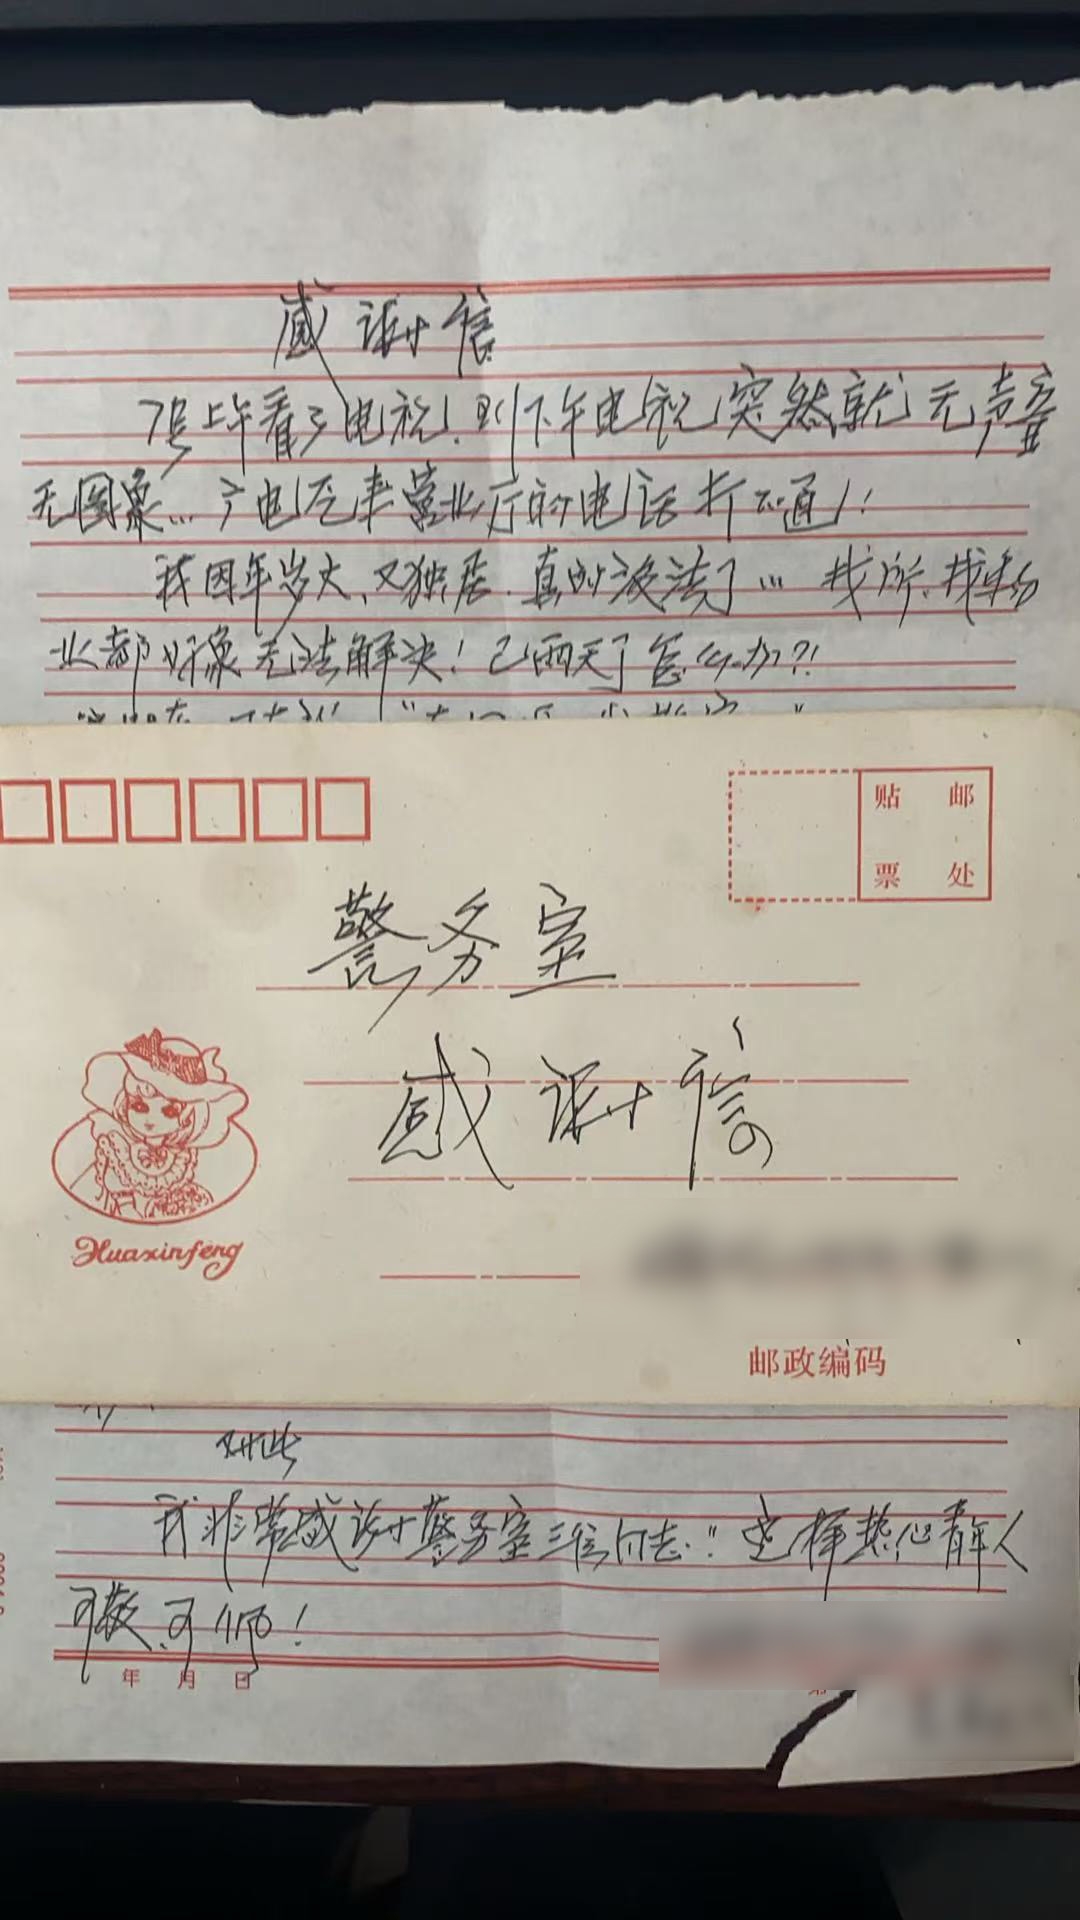 感谢信
7号上午看了电视，到下午电视突然就无声音
无图象…广电汽车营业厅的电话打不通！
我因年岁大、又独居，真的没法了… 找所、找
业都好象无法解决！已两天了怎么办？！
贴 邮
票 处
警务室
感谢信
Huaxinfeng
邮政编码
对此
我非常感谢警务室三位同志。这样热心青年人
可敬、可佩！
年 月 日